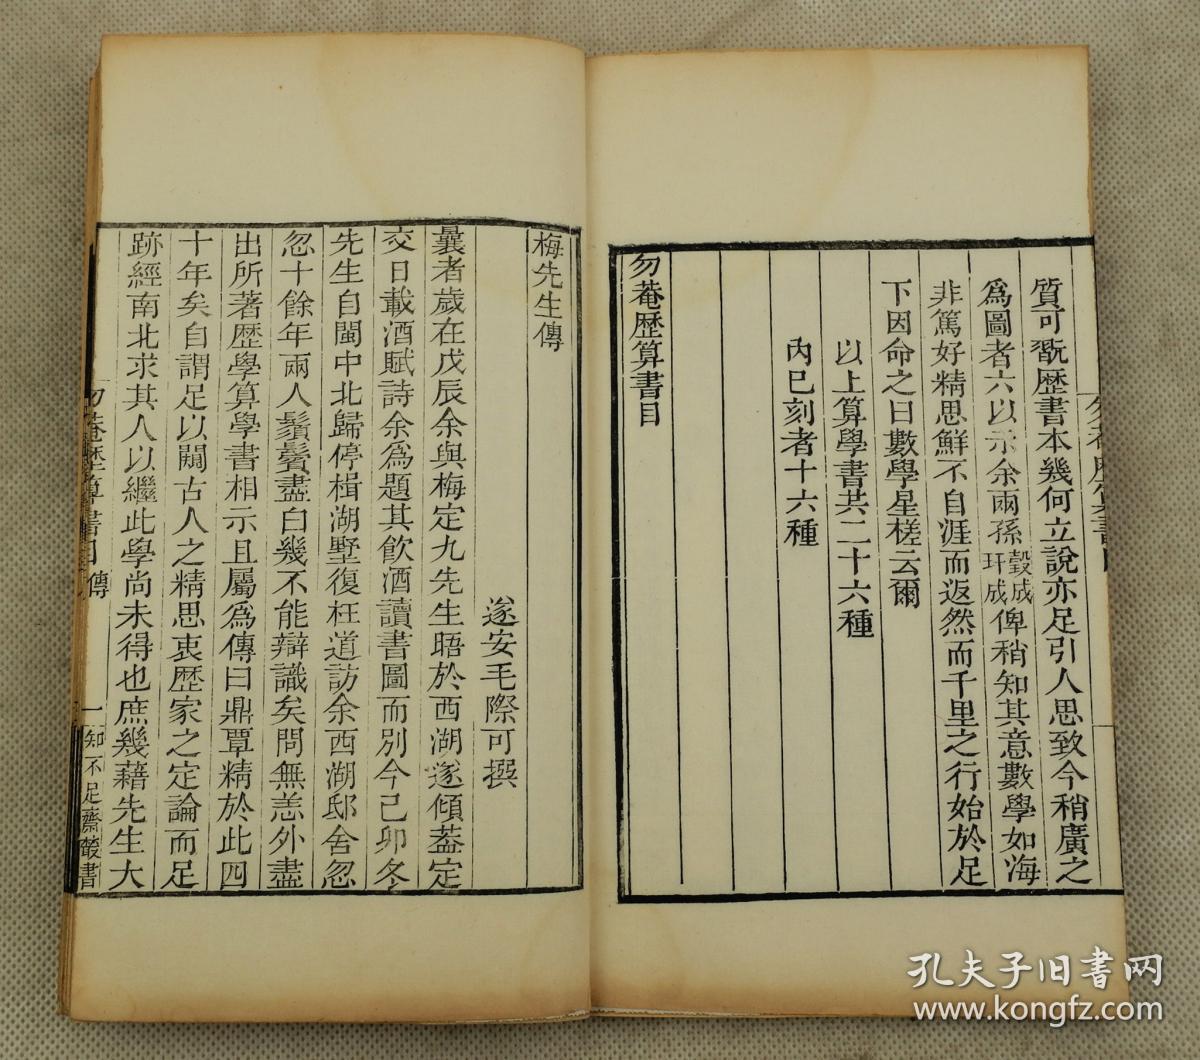 質可翫歴書本幾何立說亦足引人思致今稍廣之
爲圖者六以示余兩孫瑴成玕成俾稍知其意數學如海
非篤好精思鮮不自涯而返然而千里之行始於足
下因命之曰數學星槎云爾
以上算學書共二十六種
內已刻者十六種
勿菴歴算書目
梅先生傳
遂安毛際可撰
曩者歲在戊辰余與梅定九先生晤於西湖遂傾葢定
交日載酒賦詩余爲題其飲酒讀書圖而別今己卯冬
先生自閩中北歸停楫湖墅復枉道訪余西湖邸舍忽
忽十餘年兩人鬚鬢盡白幾不能辯識矣問無恙外盡
出所著歴學算學書相示且屬爲傳曰鼎覃精於此四
十年矣自謂足以闢古人之精思衷歴家之定論而足
跡經南北求其人以繼此學尚未得也庶幾藉先生大
勿菴歴算書目 傳 一 知不足齋叢書
孔夫子旧书网
www.kongfz.com